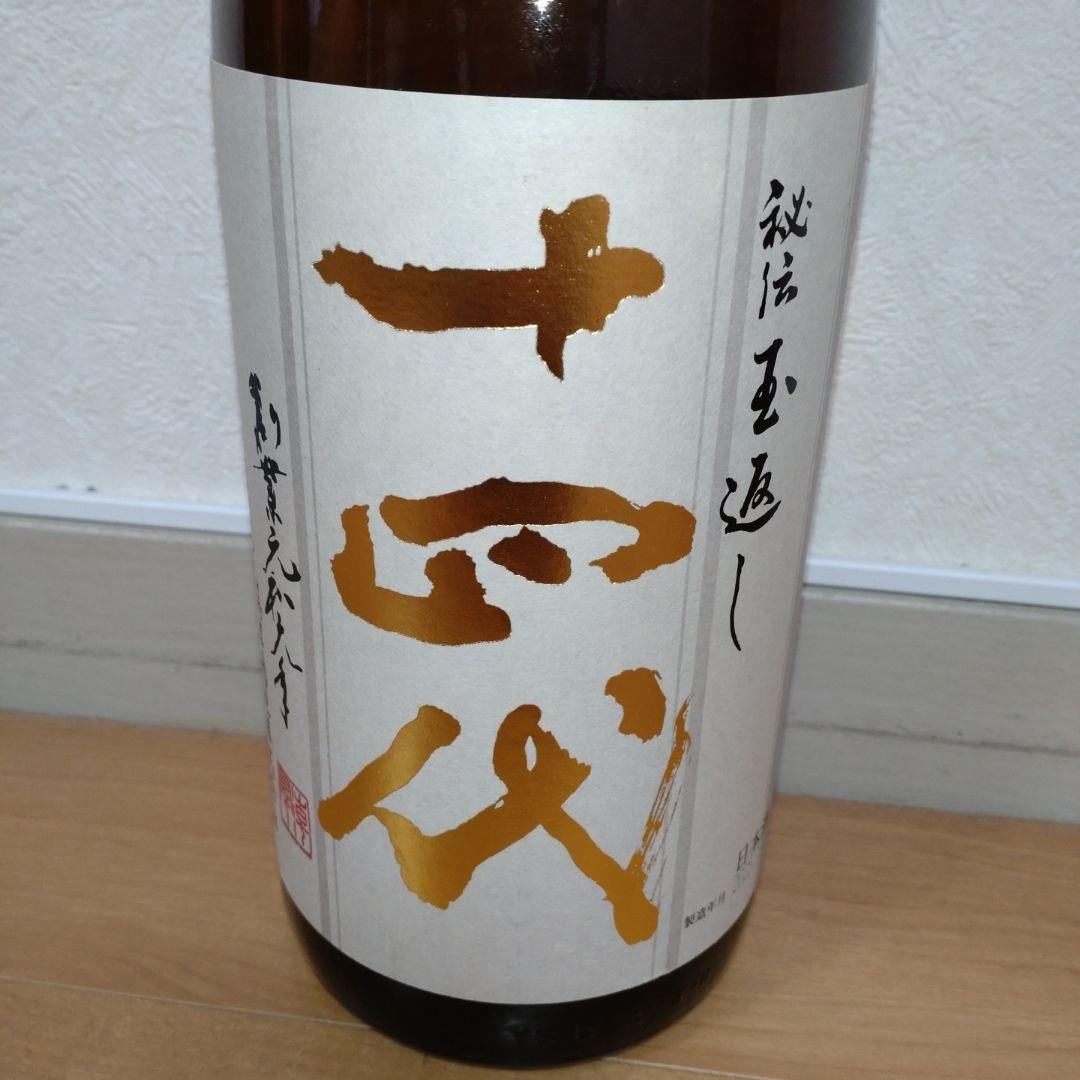 秘伝玉返し
十四代
創業元和元年
製造年月
日本